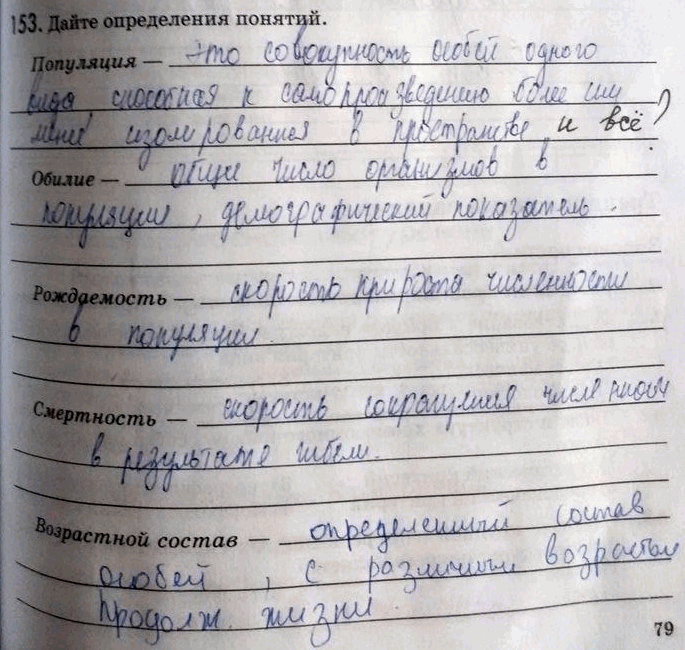 153. Дайте определения понятий.
Популяция — это совокупность особей одного
вида, способная к самопроизведению более или
мене изолированная в пространстве и всё?
Обилие — общее число организмов в
популяции, демографический показатель.
Рождаемость — скорость прироста численности
в популяции.
Смертность — скорость сокращения
в результате гибели.
Возрастной состав — определенный состав
особей, с различным возрастом
продолж. жизни.
79